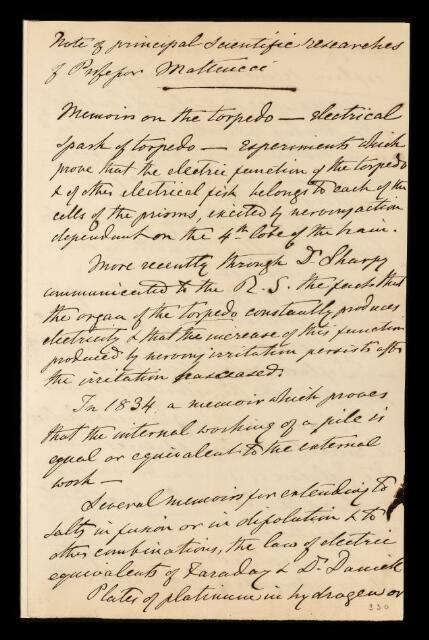 Note of principal scientific researches
of Professor Matteucci
Memoirs on the torpedo — electrical
spark of torpedo — experiments which
prove that the electric function of the torpedo
& of other electrical fish belongs to each of the
cells of the prisms, excited by nervous action
dependant on the 4th lobe of the brain.
More recently through Dr Sharpy
communicated to the R. S. the facts that
the organ of the torpedo constantly produces
electricity & that the increase of this function
produced by nervous irritation persists after
the irritation has ceased.
In 1834 a memoir which proves
that the internal working of a pile is
equal or equivalent to the external
work —
Several memoirs for extending to
salts in fusion or in dissolution & to
other combinations, the law of electric
equivalents of Faraday & Dr Daniell
Plates of platinum in hydrogen or
230